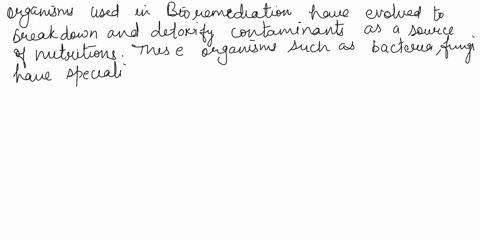 organisms used in Bioremediation have evolved to
breakdown and detoxify contaminants as a source
of nutritions. These organisms such as bacteria, fungi
have speciali